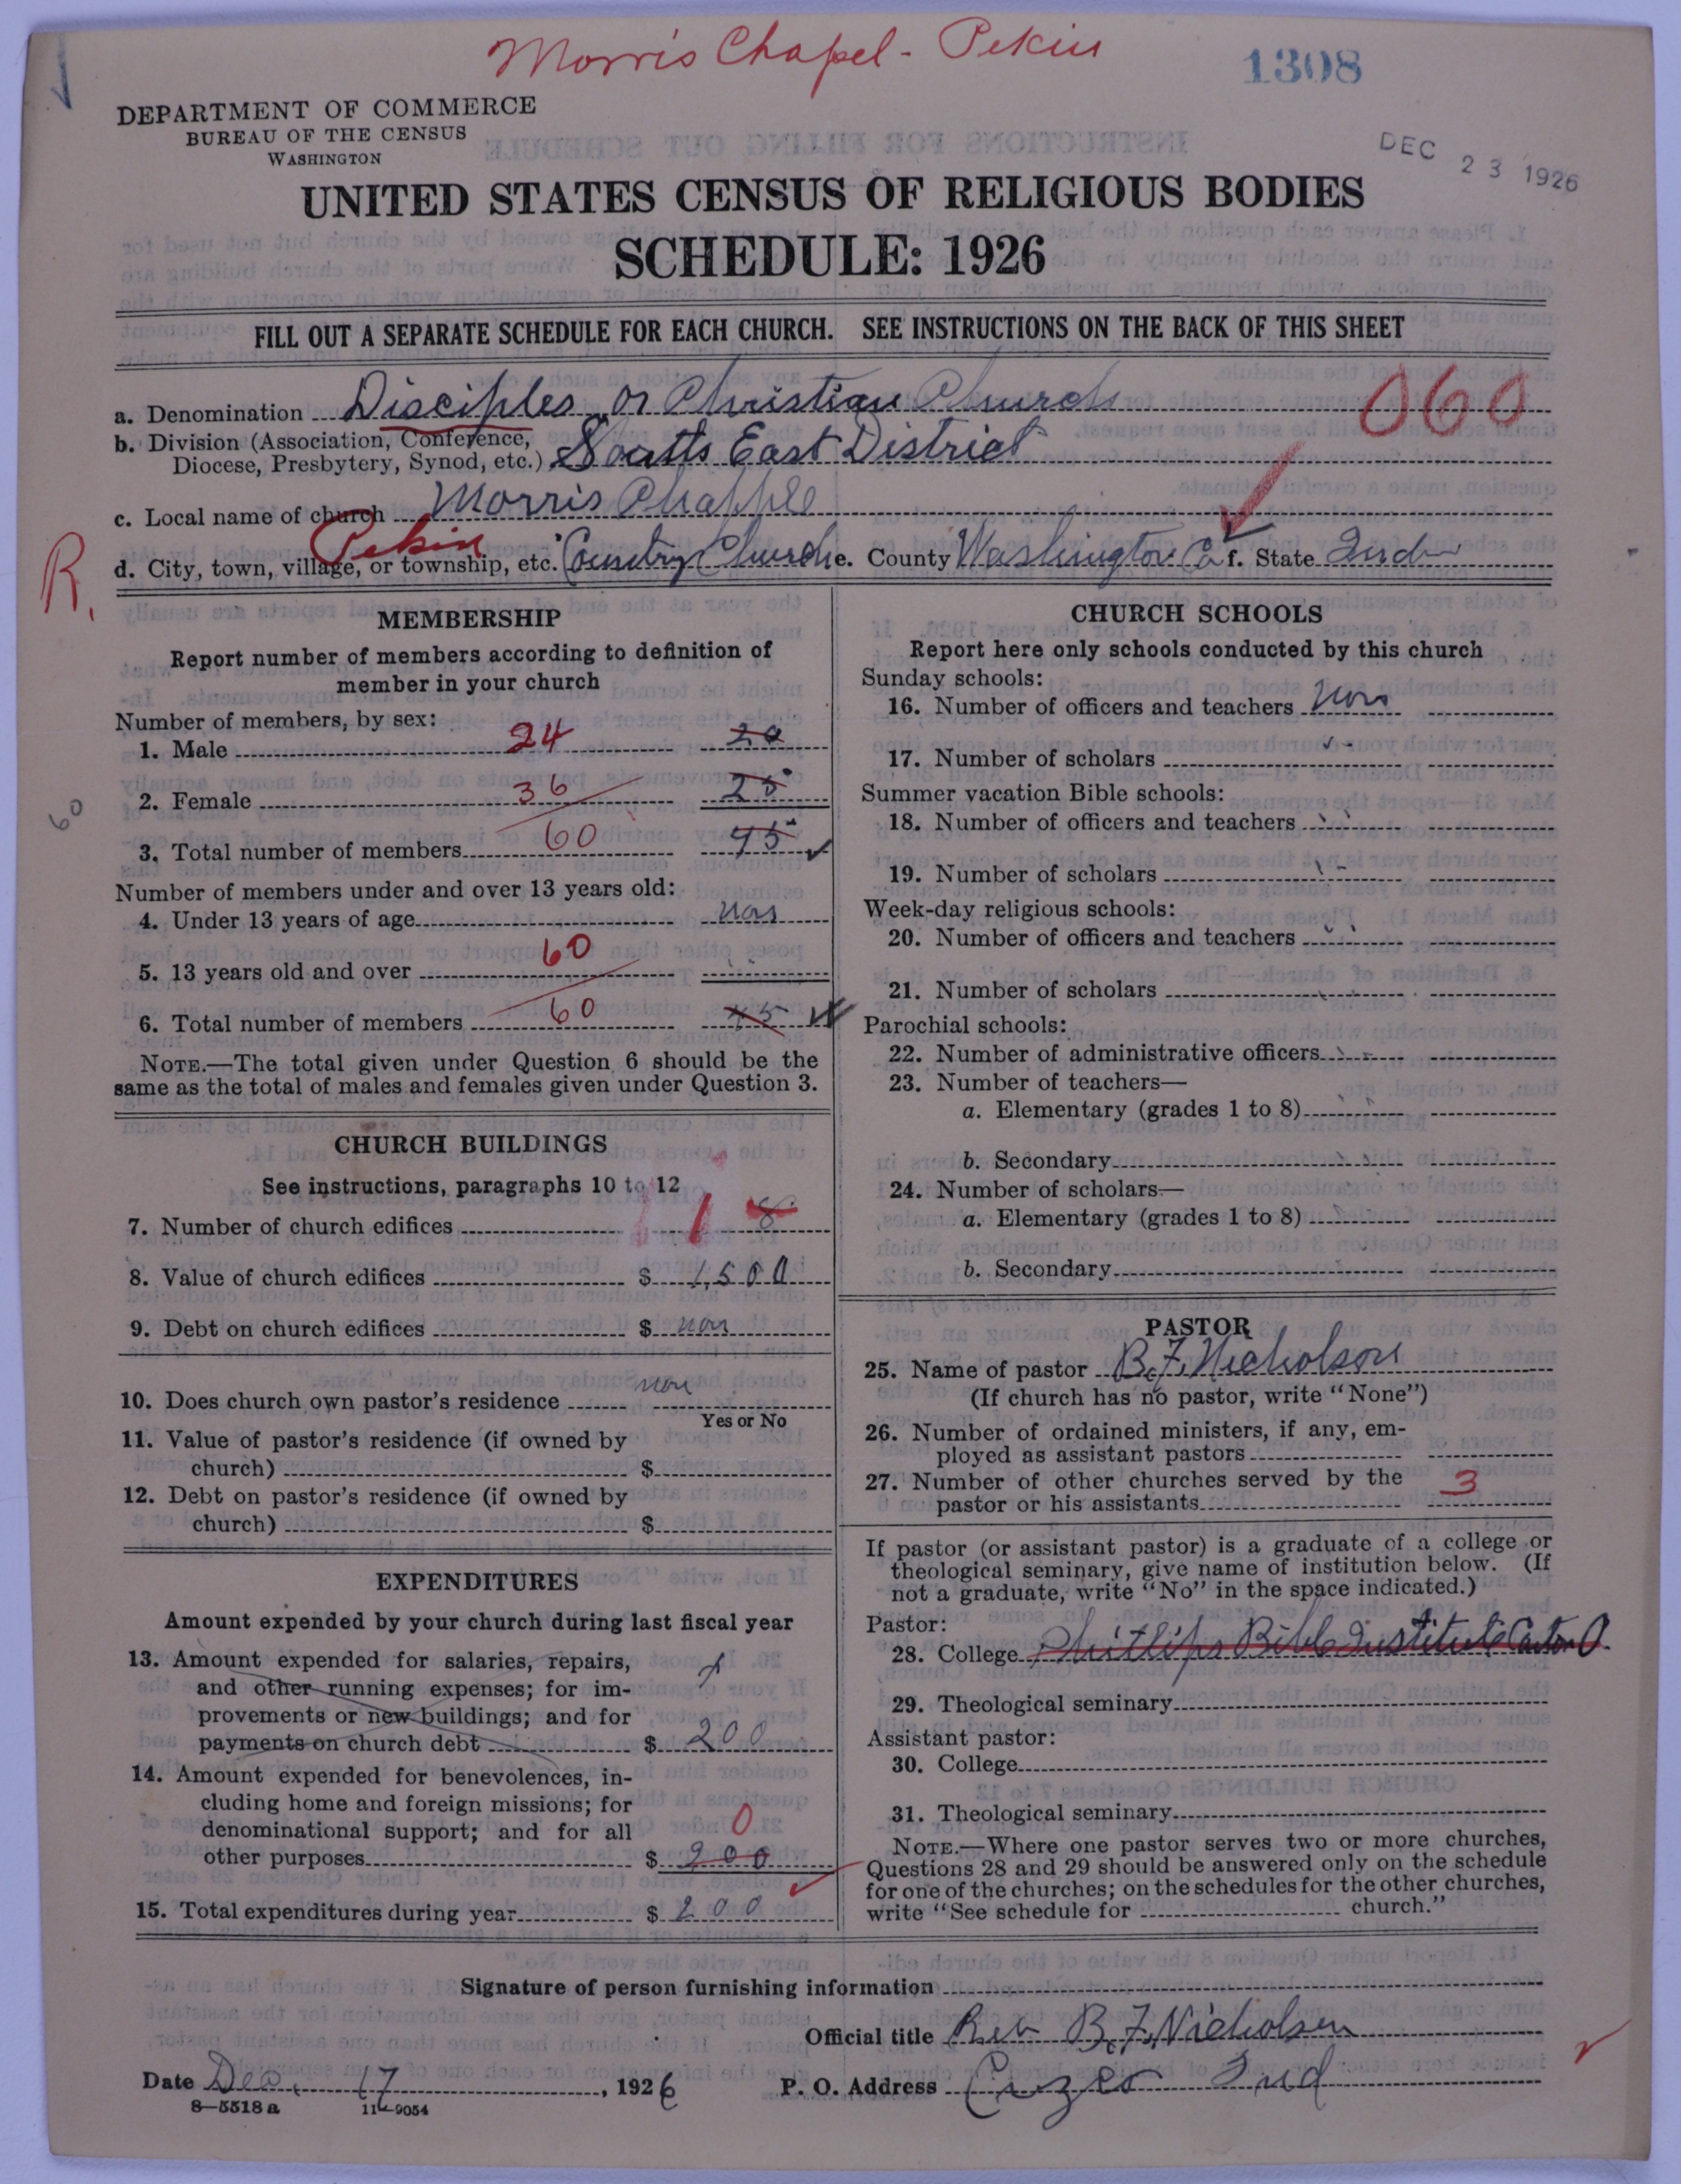 Morris Chapel - Pekin
1308
DEPARTMENT OF COMMERCE
BUREAU OF THE CENSUS
WASHINGTON
DEC 23 1926
UNITED STATES CENSUS OF RELIGIOUS BODIES
SCHEDULE: 1926
FILL OUT A SEPARATE SCHEDULE FOR EACH CHURCH. SEE INSTRUCTIONS ON THE BACK OF THIS SHEET
a. Denomination Disciples or Christian Church 060
b. Division (Association, Conference,
Diocese, Presbytery, Synod, etc.) South East District
c. Local name of church Morris Chapple
R. Pekin
d. City, town, village, or township, etc. Country Church e. County Washington Co f. State Ind
MEMBERSHIP
Report number of members according to definition of
member in your church
Number of members, by sex:
1. Male 24 20
2. Female 36 25
60
3. Total number of members 60 45
Number of members under and over 13 years old:
4. Under 13 years of age non
5. 13 years old and over 60
6. Total number of members 60 45
NOTE.—The total given under Question 6 should be the
same as the total of males and females given under Question 3.
CHURCH BUILDINGS
See instructions, paragraphs 10 to 12
7. Number of church edifices 1 8
8. Value of church edifices $ 1,500
9. Debt on church edifices $ non
10. Does church own pastor's residence non
Yes or No
11. Value of pastor's residence (if owned by
church) $
12. Debt on pastor's residence (if owned by
church) $
EXPENDITURES
Amount expended by your church during last fiscal year
13. Amount expended for salaries, repairs,
and other running expenses; for im-
provements or new buildings; and for
payments on church debt $ 200
14. Amount expended for benevolences, in-
cluding home and foreign missions; for
denominational support; and for all 0
other purposes $ 200
15. Total expenditures during year $ 200
CHURCH SCHOOLS
Report here only schools conducted by this church
Sunday schools:
16. Number of officers and teachers non
17. Number of scholars
Summer vacation Bible schools:
18. Number of officers and teachers
19. Number of scholars
Week-day religious schools:
20. Number of officers and teachers
21. Number of scholars
Parochial schools:
22. Number of administrative officers
23. Number of teachers—
a. Elementary (grades 1 to 8)
b. Secondary
24. Number of scholars—
a. Elementary (grades 1 to 8)
b. Secondary
PASTOR
25. Name of pastor B.F. Nicholson
(If church has no pastor, write "None")
26. Number of ordained ministers, if any, em-
ployed as assistant pastors
27. Number of other churches served by the 3
pastor or his assistants
If pastor (or assistant pastor) is a graduate of a college or
theological seminary, give name of institution below. (If
not a graduate, write "No" in the space indicated.)
Pastor:
28. College Phillips Bible Institute Canton O.
29. Theological seminary
Assistant pastor:
30. College
31. Theological seminary
NOTE.—Where one pastor serves two or more churches,
Questions 28 and 29 should be answered only on the schedule
for one of the churches; on the schedules for the other churches,
write "See schedule for church."
Signature of person furnishing information
Official title Rev B.F. Nicholson
Date Dec. 17, 1926 P. O. Address Ind
8—5518 a 11—9054